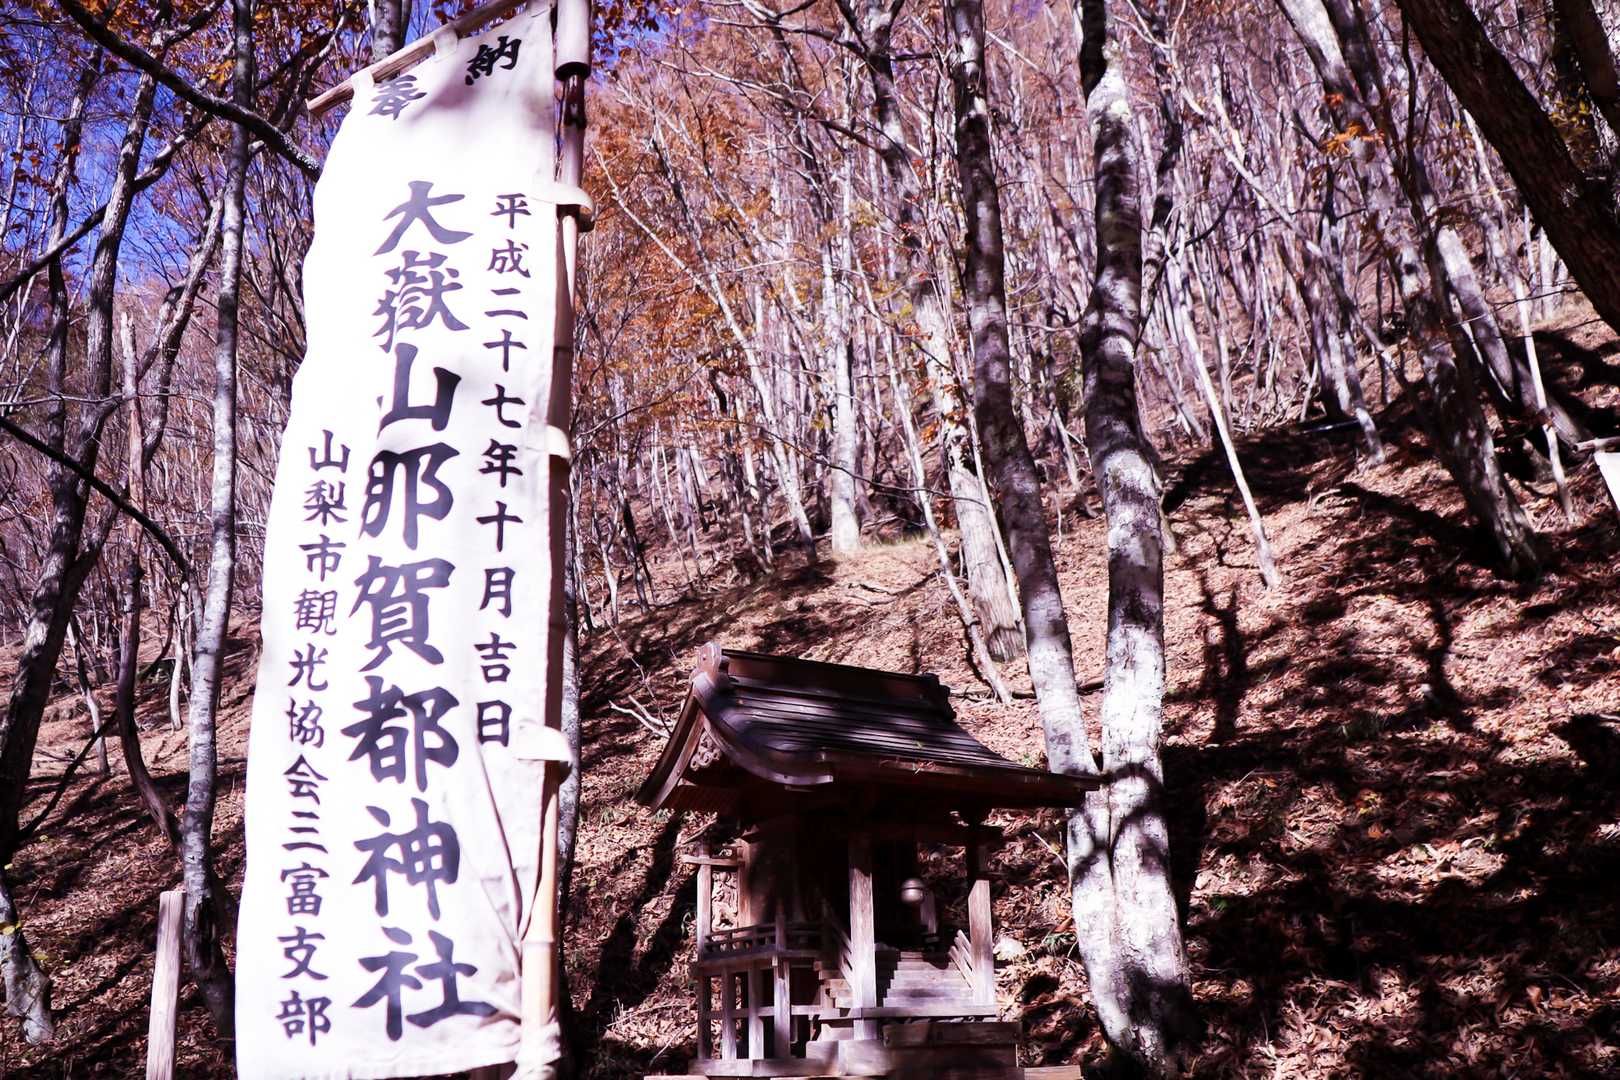 奉納
平成二十七年十月吉日
大嶽山那賀都神社
山梨市観光協会三富支部